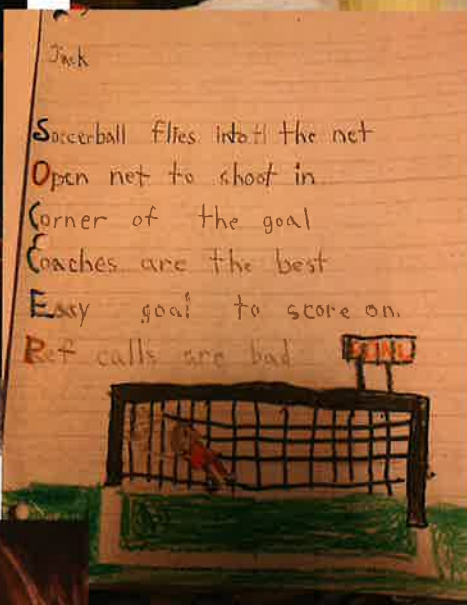 Jack
Soccerball flies into the net
Open net to shoot in
Corner of the goal
Coaches are the best
Easy goal to score on.
Ref calls are bad